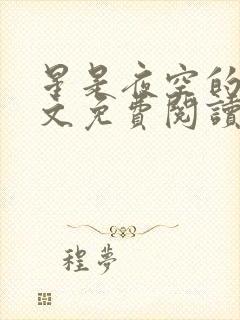 星是夜空的
文免費閱讀
程夢